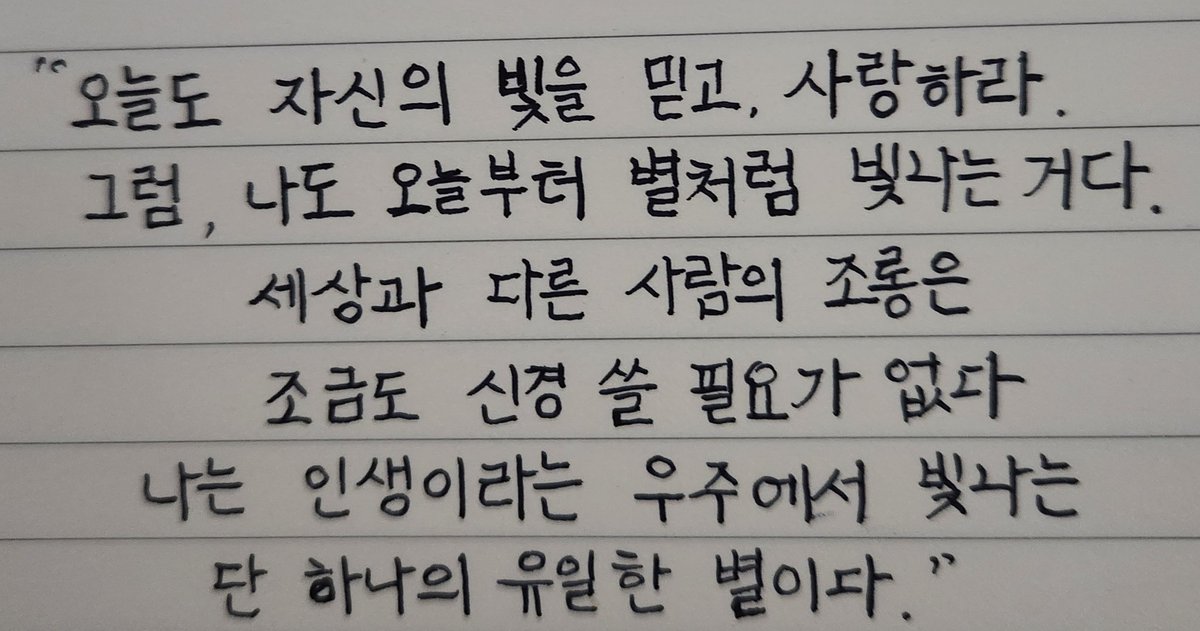 "오늘도 자신의 빛을 믿고, 사랑하라.
그럼, 나도 오늘부터 별처럼 빛나는 거다.
세상과 다른 사람의 조롱은
조금도 신경 쓸 필요가 없다
나는 인생이라는 우주에서 빛나는
단 하나의 유일한 별이다."